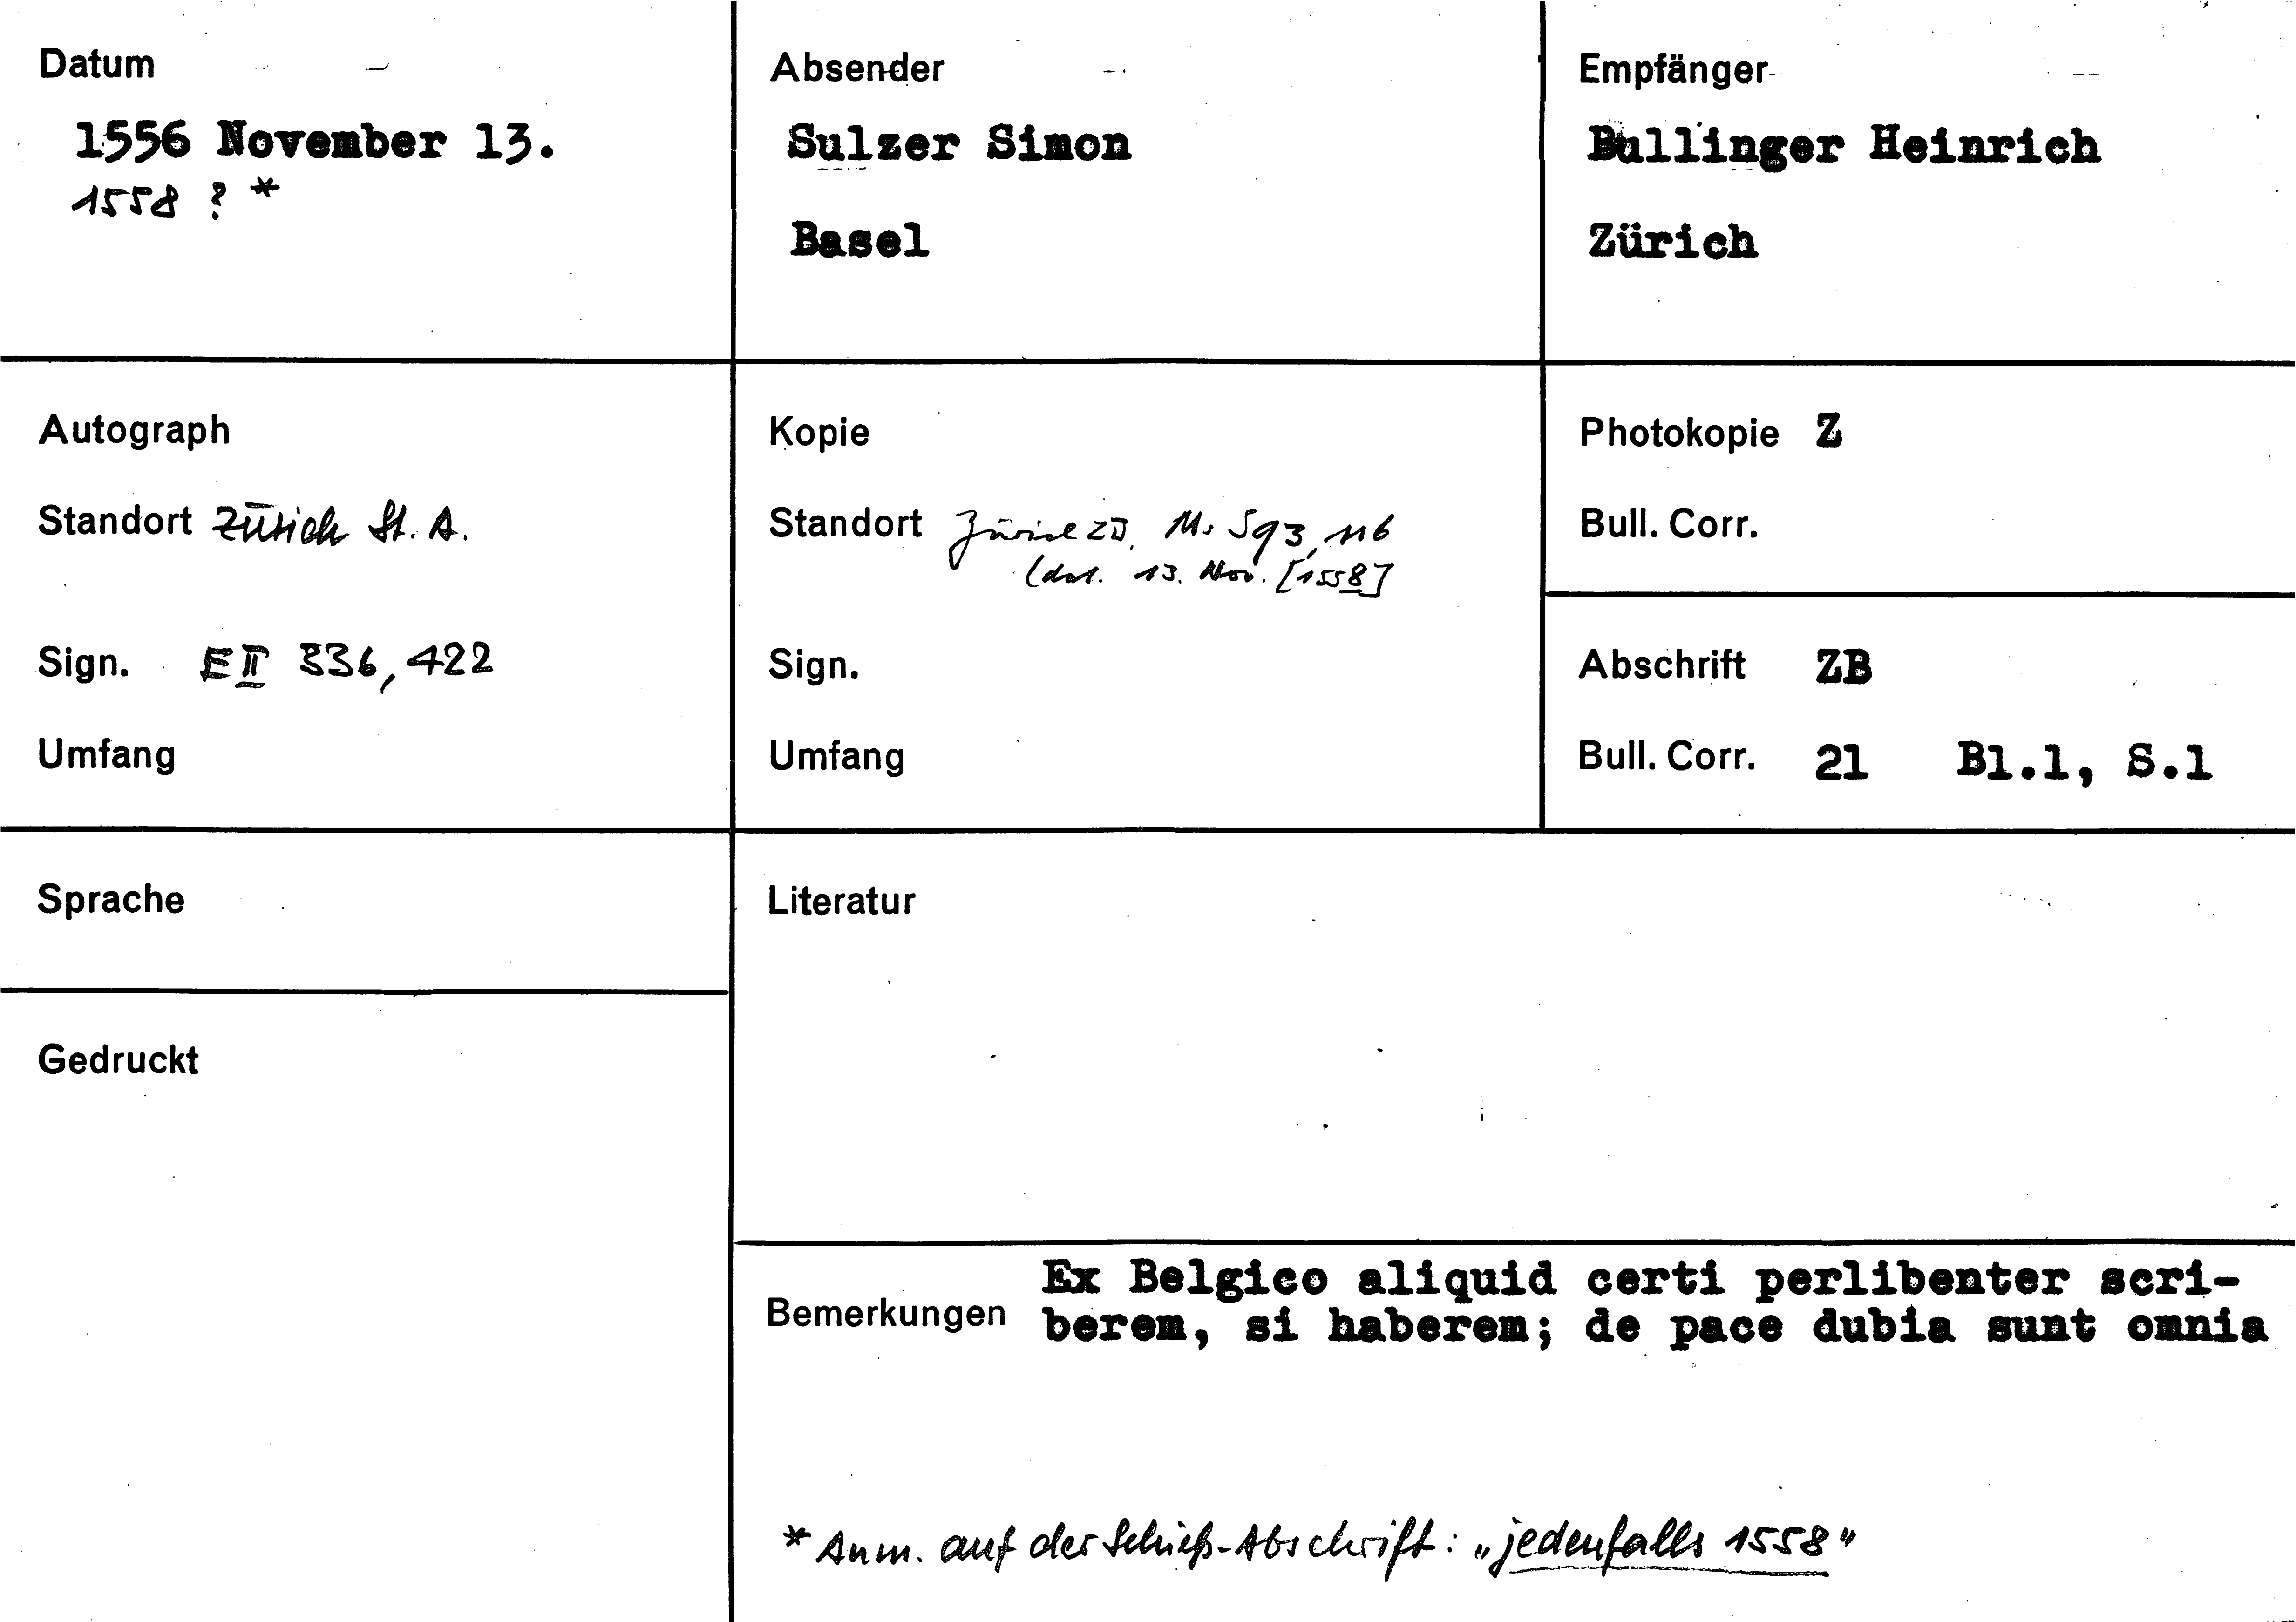 Datum
1556 November 13.
1558 ? *
Absender
Sulzer Simon
Basel
Empfänger
Bullinger Heinrich
Zürich
Autograph
Standort Zürich St. A.
Sign. E II 336, 422
Umfang
Kopie
Standort Zürich ZB, Ms S 93, 116
(dat. 13. Nov. [1558]
Sign.
Umfang
Photokopie Z
Bull. Corr.
Abschrift ZB
Bull. Corr. 21 Bl.1, S.1
Sprache
Gedruckt
Literatur
Bemerkungen
Ex Belgico aliquid certi perlibenter scri-
berem, si haberem; de pace dubia sunt omnia
* Anm. auf der Schieß-Abschrift: „jedenfalls 1558"